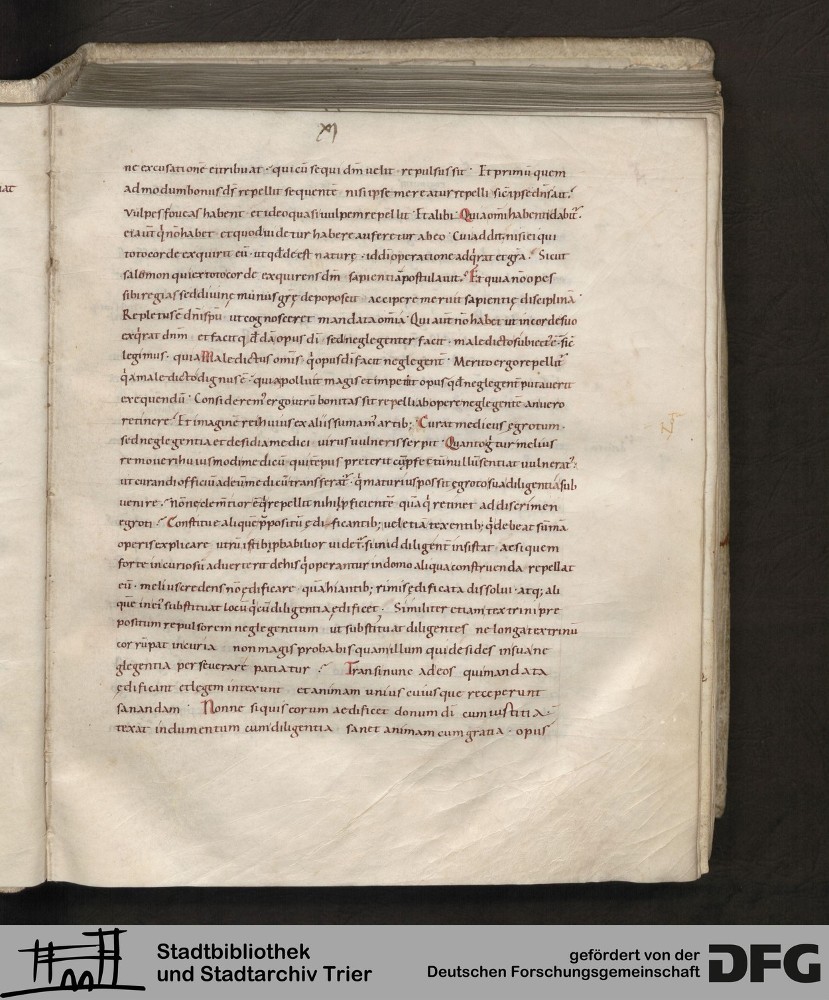 XI
ne excusatione eitribuat · qui cū sequi dm̄ uelit repulsus sit · Et primū quem
admodum bonus ds̄ repellit sequentē nisi ipse mereatur repelli sic ipse dns̄ ait.
Vulpes foueas habent et ideo quasi uulpem repellit · Et alibi · Quia omī habenti dabit᷑.
ei aut̄ q̄ nō habet et quod uidetur habere auferetur ab eo · Cui addit᷑ nisi ei qui
toto corde exquirit eū · ut qd̄ deest naturę · id di operatione adq̄rat et gr̄a · Sicut
salomon qui ex toto corde exquirens dm̄ · sapientiā postulauit · Et quia nō opes
sibi regias sed diuinę munus gr̄ę depoposcit accipere meruit sapientię disciplinā ·
Repletus ē dn̄i spū ut cognosceret mandata om̄ia · Qui aut̄ nō habet ut in corde suo
exq̄rat dnm̄ et facit qd̄ dā opus di sed neglegenter facit · maledicto subiect᷑ ē · sic̄
legimus · quia Maledictus omis q̄ opus di facit neglegent᷑ · Merito ergo repellit᷑
q̄ a maledicto dignus ē · quia polluit magis et opus qd̄ neglegent᷑ putauerit
exequendū · Considerem᷑ ergo utrū bonitas sit repelli ab opere neglegente an uero
retinere · Et imaginē rei huius ex aliis sumam᷑ artib; · Curat medicus ęgrotum ·
sed neglegentia et desidia medici uirus uulneris serpit · Quanto g᷑ tur melius
remoueri huiusmodi medicū qui tēpus preterit nullū sentiat uulnerat᷑ ·
ut curandi officiū ad eum medicū transferat᷑ · q̄ maturius possit ęgroto sua diligentia sub
uenire · nonne clem̄tior ē q̄ repellit nihil ꝓficiente quā q̄ retinet ad discrimen
egroti · Constitue aliquē p̄positū ędificantib; uel etiā texentib; q̄ debeat sūmā
operis explicare utrū istis ꝓbabilior uidet᷑ · si in id diligent᷑ insistat ac si quem
forte incuriosū aduerterit de his q̄ operantur in domo aliqua construenda repellat
eū · melius credens nō ędificare quā hiantib; rimis ędificata dissolui · atq; ali
quē int᷑ substituat locū q̄ cū diligentia ędificet · Similiter etiam textrini pre
positum repulsorem neglegentium ut substituat diligentes ne longa textrinū
corrūpat incuria non magis probabis quam illum qui desides in sua ne
glegentia perseuerare patiatur · Transi nunc ad eos qui mandata
ędificant et legem intexunt et animam unius cuiusque receperunt
sanandam · Nonne si quis eorum aedificet donum di cum iustitia ·
texat indumentum cum diligentia sanet animam cum gratia · opus
Stadtbibliothek
und Stadtarchiv Trier
gefördert von der
Deutschen Forschungsgemeinschaft
DFG